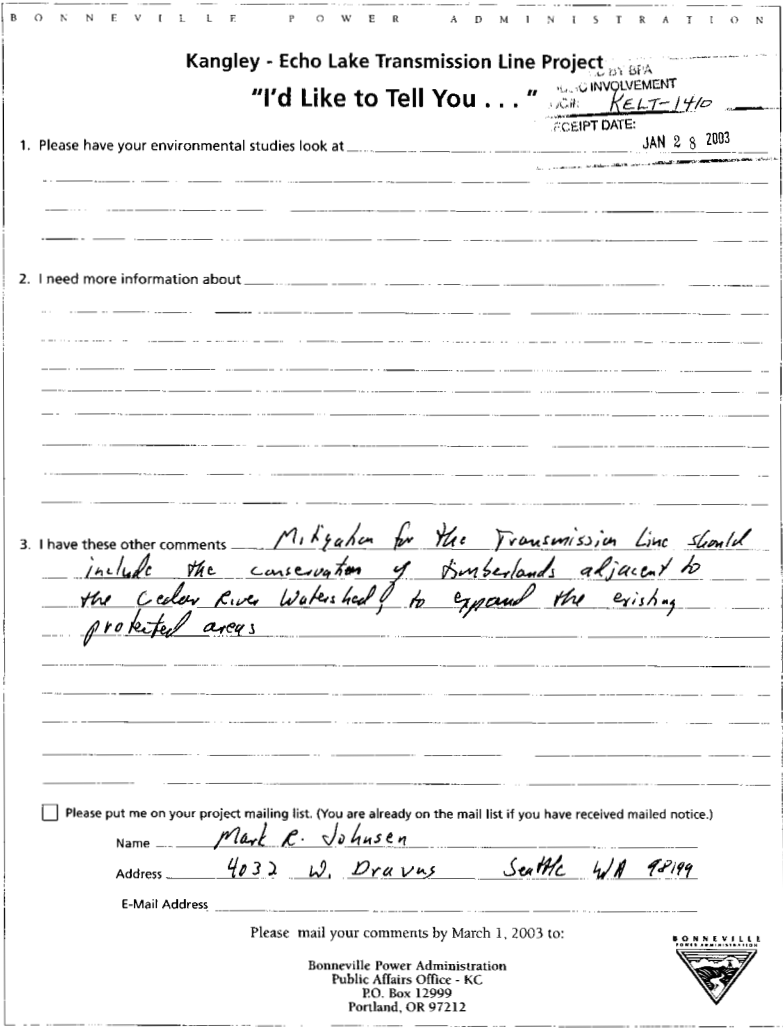 BONNEVILLE POWER ADMINISTRATION
Kangley - Echo Lake Transmission Line Project
BY BPA
"I'd Like to Tell You . . . "
INVOLVEMENT
KELT-1410
CEIPT DATE:
JAN 28 2003
1. Please have your environmental studies look at
2. I need more information about
3. I have these other comments Mitigation for the Transmission Line should
include the conservation of timberlands adjacent to
the Cedar River Watershed, to expand the existing
protected areas
Please put me on your project mailing list. (You are already on the mail list if you have received mailed notice.)
Name Mark R. Johnsen
Address 4032 W. Dravus Seattle WA 98199
E-Mail Address
Please mail your comments by March 1, 2003 to:
Bonneville Power Administration
Public Affairs Office - KC
P.O. Box 12999
Portland, OR 97212
BONNEVILLE
POWER ADMINISTRATION